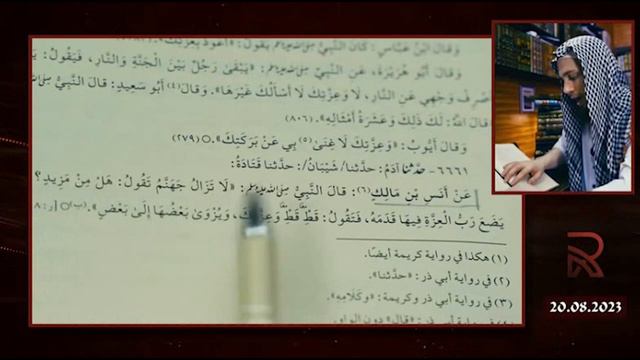 وَقَالَ ابْنُ عَبَّاسٍ: كَانَ النَّبِيُّ صلى الله عليه وسلم يَقُولُ: «أَعُوذُ بِعِزَّتِكَ».
وَقَالَ أَبُو هُرَيْرَةَ، عَنِ النَّبِيِّ صلى الله عليه وسلم: «يَبْقَى رَجُلٌ بَيْنَ الْجَنَّةِ وَالنَّارِ، فَيَقُولُ:
اصْرِفْ وَجْهِي عَنِ النَّارِ، لَا وَعِزَّتِكَ لَا أَسْأَلُكَ غَيْرَهَا». وَقَالَ (٤) أَبُو سَعِيدٍ: قَالَ النَّبِيُّ
قَالَ اللَّهُ: لَكَ ذَلِكَ وَعَشَرَةُ أَمْثَالِهِ». (٨٠٦)
وَقَالَ أَيُّوبُ: «وَعِزَّتِكَ لَا غِنَى (٥) بِي عَنْ بَرَكَتِكَ». (٢٧٩)
٦٦٦١- حَدَّثَنَا آدَمُ: حَدَّثَنَا شَيْبَانُ: حَدَّثَنَا قَتَادَةُ:
عَنْ أَنَسِ بْنِ مَالِكٍ (٦): قَالَ النَّبِيُّ صلى الله عليه وسلم: «لَا تَزَالُ جَهَنَّمُ تَقُولُ: هَلْ مِنْ مَزِيدٍ؟
يَضَعَ رَبُّ الْعِزَّةِ فِيهَا قَدَمَهُ، فَتَقُولُ: قَطْ قَطْ وَعِزَّتِكَ، وَيُزْوَى بَعْضُهَا إِلَى بَعْضٍ». (ب)
(١) هكذا في رواية كريمة أيضًا.
(٢) في رواية أبي ذر: «حدَّثنا».
(٣) في رواية أبي ذر وكريمة: «وَكَلَامِهِ».
في رواية أبي ذر: «قال» دون الواو.
20.08.2023